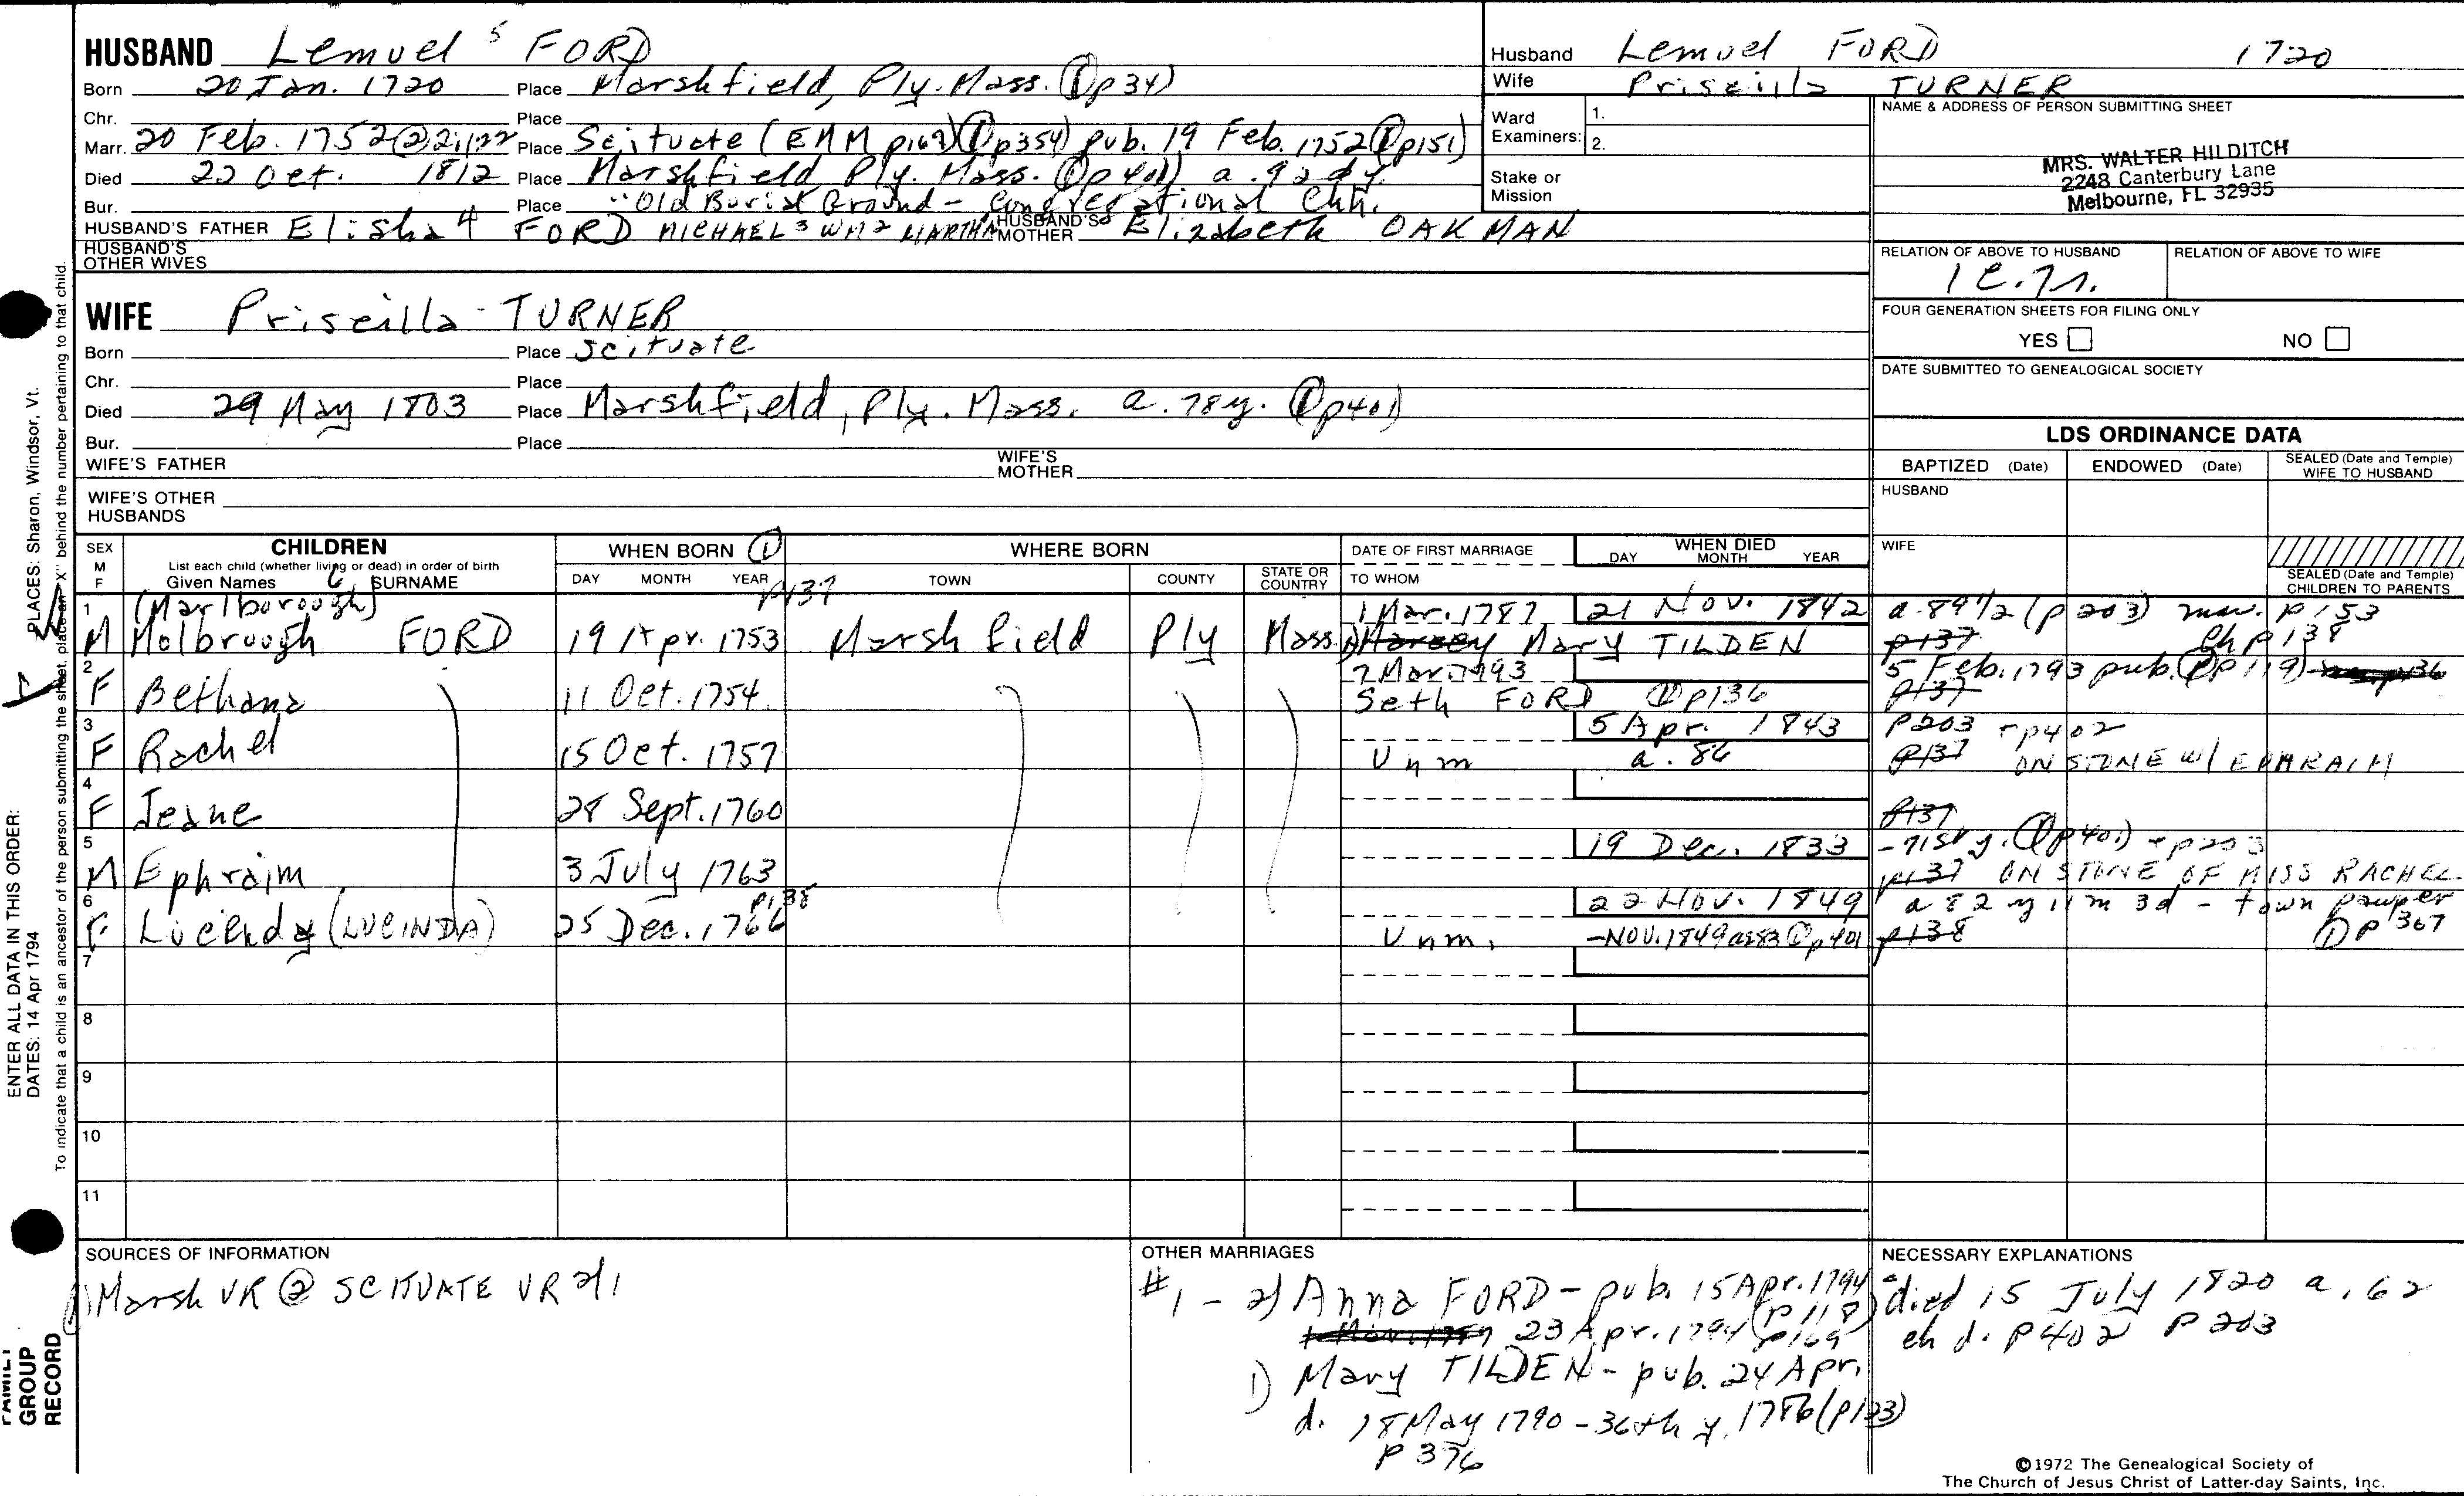 HUSBAND Lemuel 5 FORD
Born 20 Jan. 1720 Place Marshfield, Ply. Mass. (1) p34)
Chr. Place
Marr. 20 Feb. 1752 (2) 2:1122 Place Scituate (EMM p169) (1) p354) pub. 19 Feb. 1752 (1) p151)
Died 22 Oct. 1812 Place Marshfield Ply. Mass. (1) p401) a. 92 d y.
Bur. Place "Old Burial Ground - Congregational Chh.
HUSBAND'S FATHER Elisha 4 FORD MICHAEL 3 WM 2 MARTHA 1 HUSBAND'S MOTHER Elizabeth OAKMAN
HUSBAND'S OTHER WIVES
Husband Lemuel FORD 1720
Wife Priscilla TURNER
Ward Examiners: 1.
2.
Stake or Mission
NAME & ADDRESS OF PERSON SUBMITTING SHEET
MRS. WALTER HILDITCH
2248 Canterbury Lane
Melbourne, FL 32935
RELATION OF ABOVE TO HUSBAND RELATION OF ABOVE TO WIFE
FOUR GENERATION SHEETS FOR FILING ONLY
YES NO
DATE SUBMITTED TO GENEALOGICAL SOCIETY
WIFE Priscilla TURNER
Born Place Scituate
Chr. Place
Died 29 May 1803 Place Marshfield, Ply. Mass. a. 78 y. (1) p401)
Bur. Place
WIFE'S FATHER WIFE'S MOTHER
WIFE'S OTHER HUSBANDS
LDS ORDINANCE DATA
BAPTIZED (Date) ENDOWED (Date) SEALED (Date and Temple) WIFE TO HUSBAND
HUSBAND
WIFE
SEALED (Date and Temple) CHILDREN TO PARENTS
SEX M F
CHILDREN
List each child (whether living or dead) in order of birth
Given Names 6 SURNAME
WHEN BORN (1)
DAY MONTH YEAR p137
WHERE BORN
TOWN COUNTY STATE OR COUNTRY
DATE OF FIRST MARRIAGE
TO WHOM
WHEN DIED
DAY MONTH YEAR
1 (Marlborough) 1 Mar. 1787 21 Nov. 1842 a. 89 1/2 (p203) mar. p153
M Molbrough FORD 19 Apr. 1753 Marshfield Ply Mass. Mary TILDEN p137 Ch p138
2 7 Mar. 1793 5 Feb. 1793 pub. (1) p119)
F Bethana 11 Oct. 1754 Seth FORD (1) p136 p137
3 5 Apr. 1843 p203 + p402
F Rachel 15 Oct. 1757 Unm a. 86 p137 ON STONE W/ EPHRAIM
4
F Jeane 28 Sept. 1760 p137
5 19 Dec. 1833 - 71st y. (1) p401) + p203
M Ephraim 3 July 1763 p137 ON STONE OF MISS RACHEL
6 p138 22 Nov. 1849 a 82 y 11 m 3 d - town pauper
F Lucenda (LUCINDA) 25 Dec. 1766 Unm. -NOV. 1849 ae 83 (1) p401 p138 (1) p367
7
8
9
10
11
SOURCES OF INFORMATION
(1) Marsh VR (2) SCITUATE VR 2/1
OTHER MARRIAGES
#1 - 2) Anna FORD - pub. 15 Apr. 1794 (p118)
23 Apr. 1794 p169
1) Mary TILDEN - pub. 24 Apr.
d. 18 May 1790 - 36th y. 1786 (p133)
p376
NECESSARY EXPLANATIONS
died 15 July 1820 a. 62
ch d. p402 p203
©1972 The Genealogical Society of
The Church of Jesus Christ of Latter-day Saints, Inc.
ENTER ALL DATA IN THIS ORDER:
DATES: 14 Apr 1794
PLACES: Sharon, Windsor, Vt.
To indicate that a child is an ancestor of the person submitting the sheet, place an "X" behind the number pertaining to that child.
FAMILY GROUP RECORD